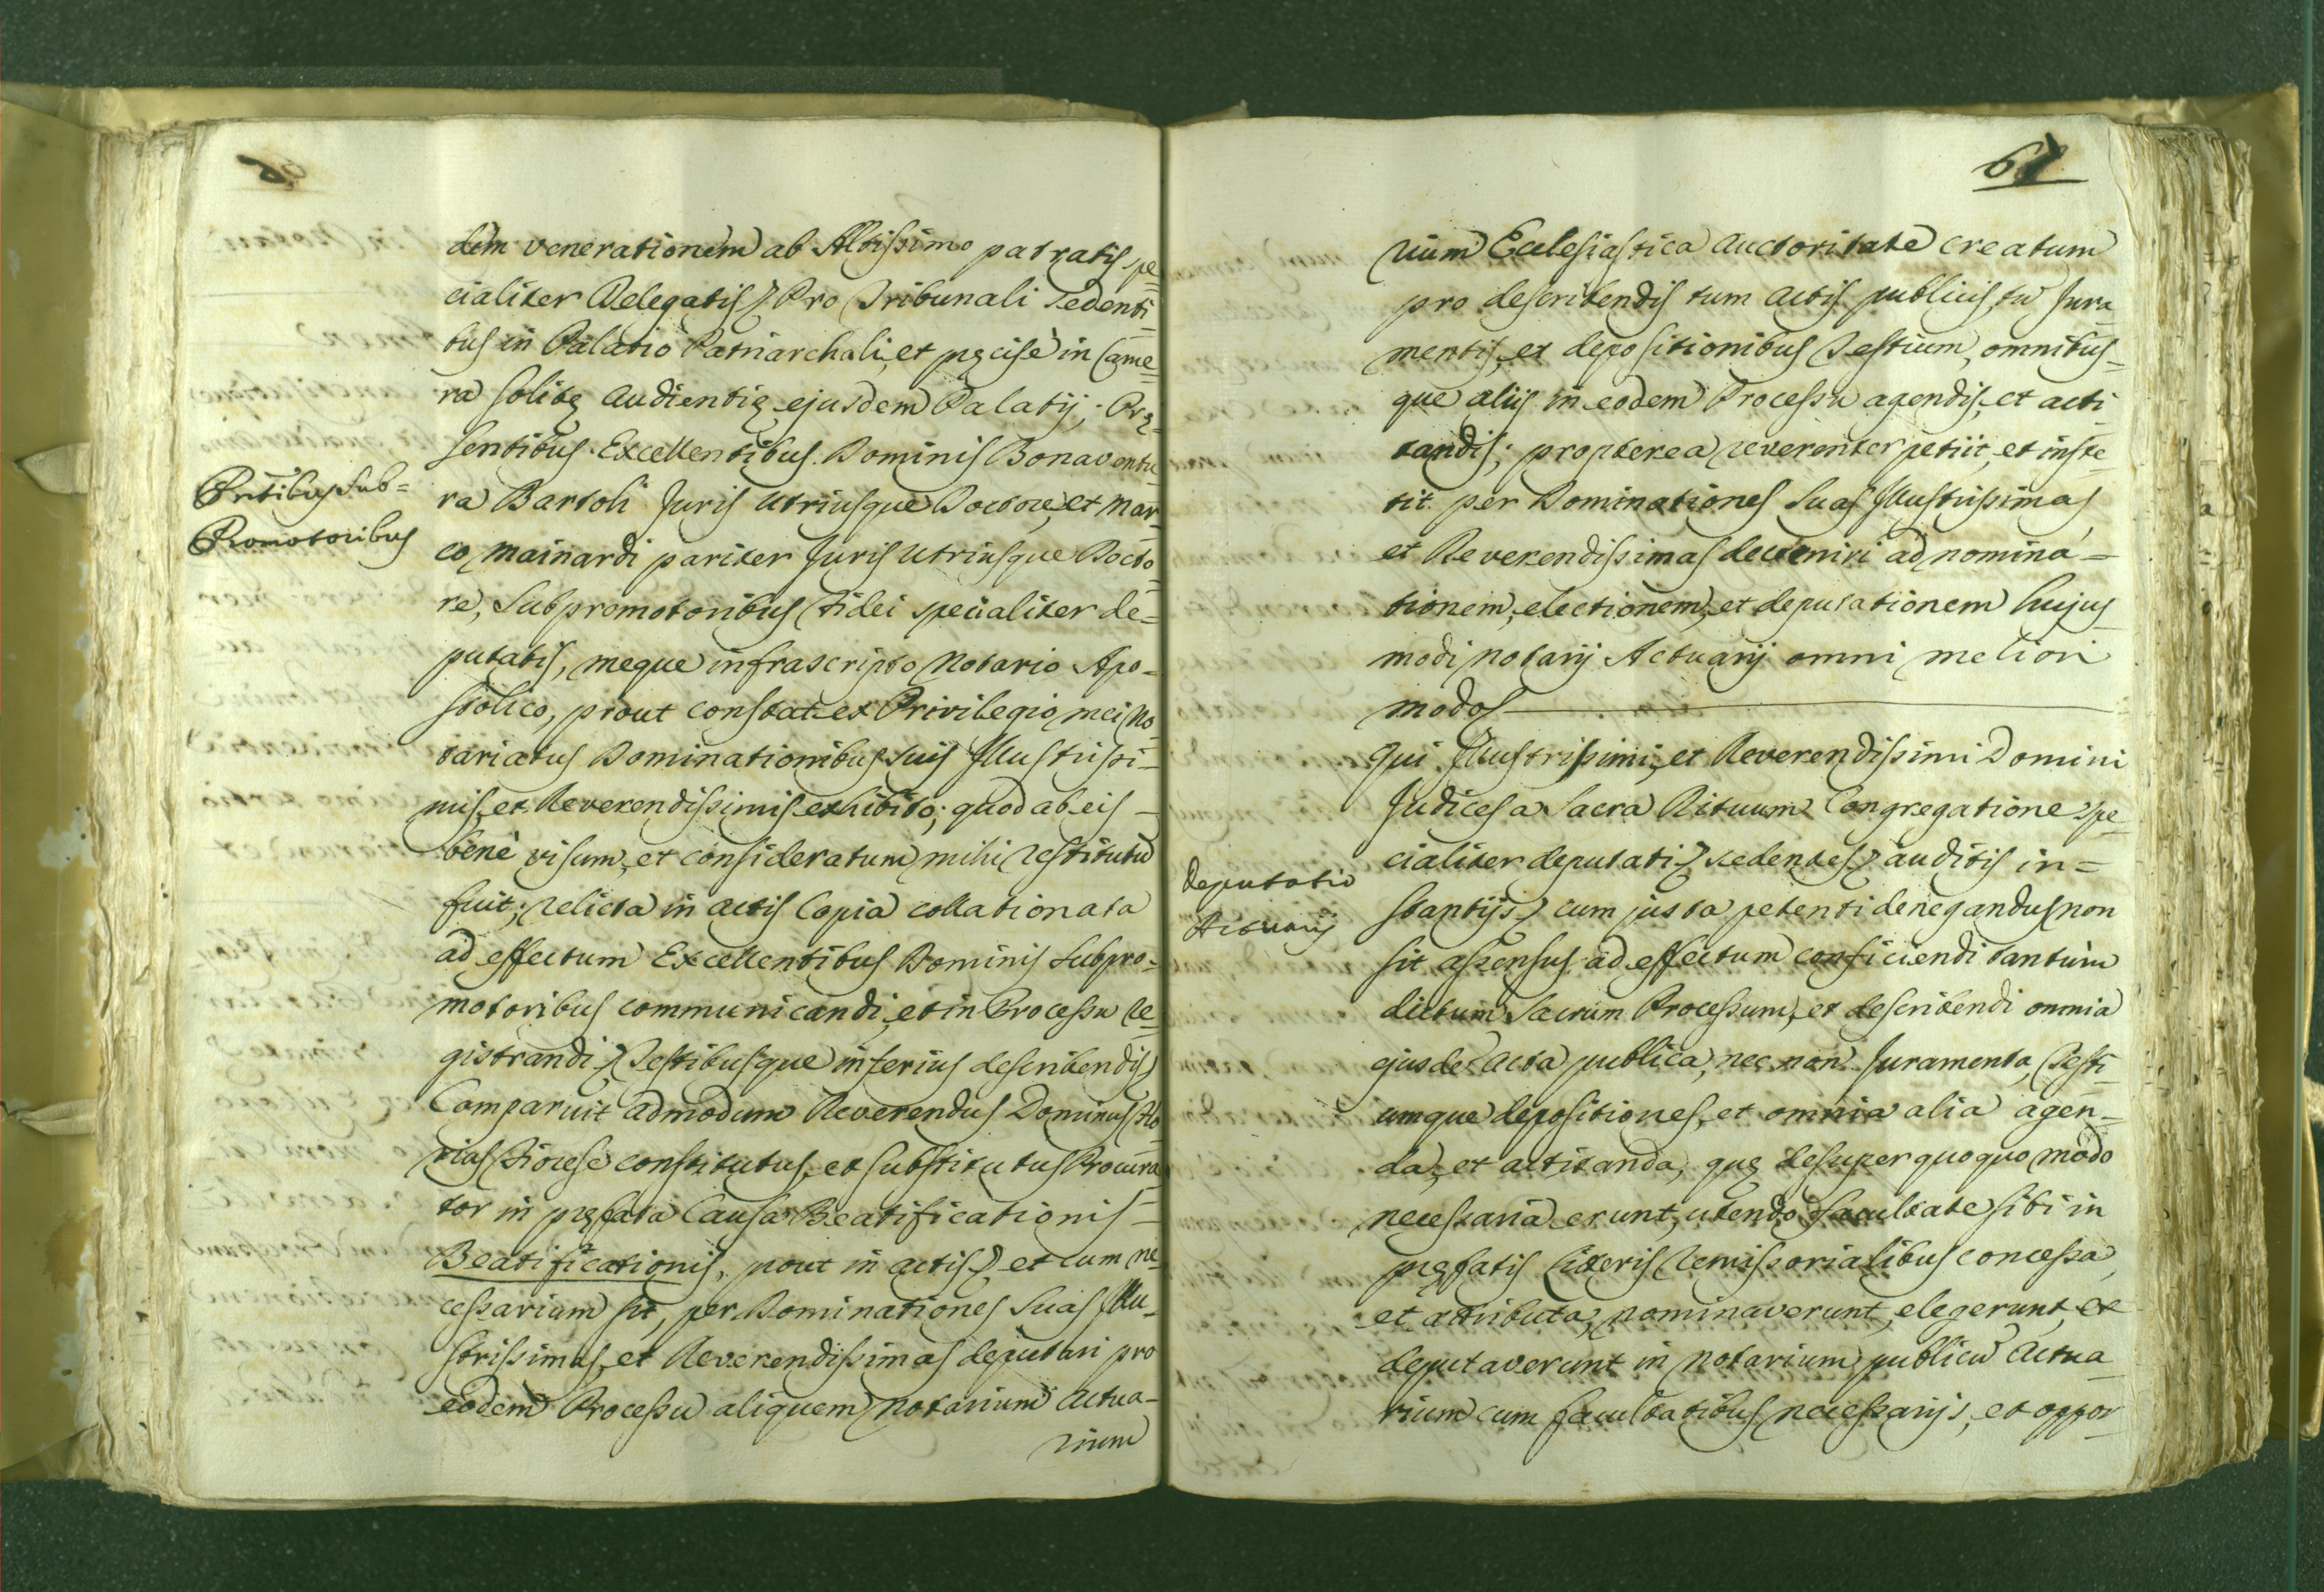 dem venerationem ab Altissimo patratis spe=
cialiter Delegatis) Pro Tribunali sedenti=
bus in Palatio Patriarchali, et pręcisè in Came=
ra solitę Audientię ejusdem Palatij; Prę=
sentibus Excellentibus Dominis Bonaventu=
Pntibus Sub=
Promotoribus
ra Bartoli Juris Utriusque Doctore, et Mar=
co Mainardi pariter Juris Utriusque Docto=
re, Subpromotoribus Fidei specialiter de=
putatis, meque infrascripto Notario Apo=
stolico, prout constat ex Privilegio mei No=
tariatus Dominationibus suis Illustrissi=
mis, et Reverendissimis exhibito; quod ab eis
benè visum, et consideratum mihi restitutũ
fuit; relicta in actis Copia collationata
ad effectum Excellentibus Dominis Subpro=
motoribus communicandi, et in Processu re=
gistrandi) Testibusque inferius describendis)
Comparuit admodum Reverendus Dominus
constitutus, et substitutus Procura=
tor in pręfata Causa Beatificationis
Beatificationis, prout in actis) et cum ne=
cessarium sit, per Dominationes Suas Illu=
strissimas, et Reverendissimas deputari pro
eodem Processu aliquem Notarium Actua=
rium
67
rium Ecclesiastica Auctoritate creatum
pro describendis tum actis publicis, tũ Jura=
mentis, et depositionibus Testium, omnibus=
que aliis in eodem Processu agendis, et acti=
tandis; propterea reverenter petiit, et inste=
tit per Dominationes Suas Illustrissimas,
et Reverendissimas deveniri ad nomina=
tionem, electionem, et deputationem hujus
modi Notarij Actuarij omni meliori
modo)
Qui Illustrissimi, et Reverendissimi Domini
Judices a Sacra Rituum Congregatione spe=
cialiter deputati) sedentes) auditis in=
Deputatio
Actuarij
stantijs) cum justa petenti denegandus non
sit assensus ad effectum conficiendi tantùm
dictum Sacrum Processum, et describendi omnia
ejusdẽ Acta publica, nec non Juramenta, Testi=
umque depositiones, et omnia alia agen=
da, et actitanda, quę desuper quoquo modo
necessaria erunt, utendo facultate sibi in
pręfatis Literis Remissorialibus concessa,
et attributa, nominaverunt, elegerunt, et
deputaverunt in Notarium publicũ Actua=
rium cum facultatibus necessarijs, et oppor=